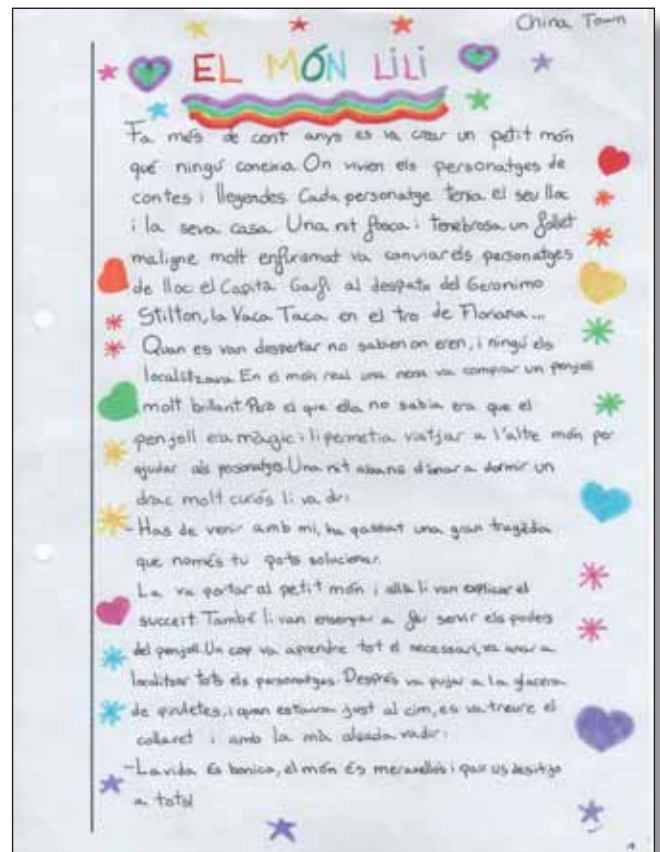 China Town
EL MÓN LiLi
Fa més de cent anys es va crear un petit món
què ningú coneixia. On vivien els personatges de
contes i llegendes. Cada personatge tenia el seu lloc
i la seva casa. Una nit fosca i tenebrosa un follet
maligne molt enfurismat va canviar els personatges
de lloc el Capità Garfi al despatx del Geronimo
Stilton, la Vaca Taca en el tro de Floriana...
Quan es van despertar no sabien on eren, i ningú els
localitzava. En el món real una nena va comprar un penjoll
molt brillant. Però el que ella no sabia era que el
penjoll era màgic i li permetia viatjar a l'altre món per
ajudar als personatges. Una nit abans d'anar a dormir un
drac molt curiós li va dir:
-Has de venir amb mi, ha passat una gran tragèdia
que només tu pots solucionar.
La va portar al petit món i allà li van explicar el
succeït. També li van ensenyar a fer servir els poders
del penjoll. Un cop va aprendre tot el necessari, va anar a
localitzar tots els personatges. Després va pujar a la
de piruletes, i quan estava just al cim, es va treure el
collaret i amb la mà alçada va dir:
-La vida és bonica, el món és meravellós i pau us desitjo
a tots!